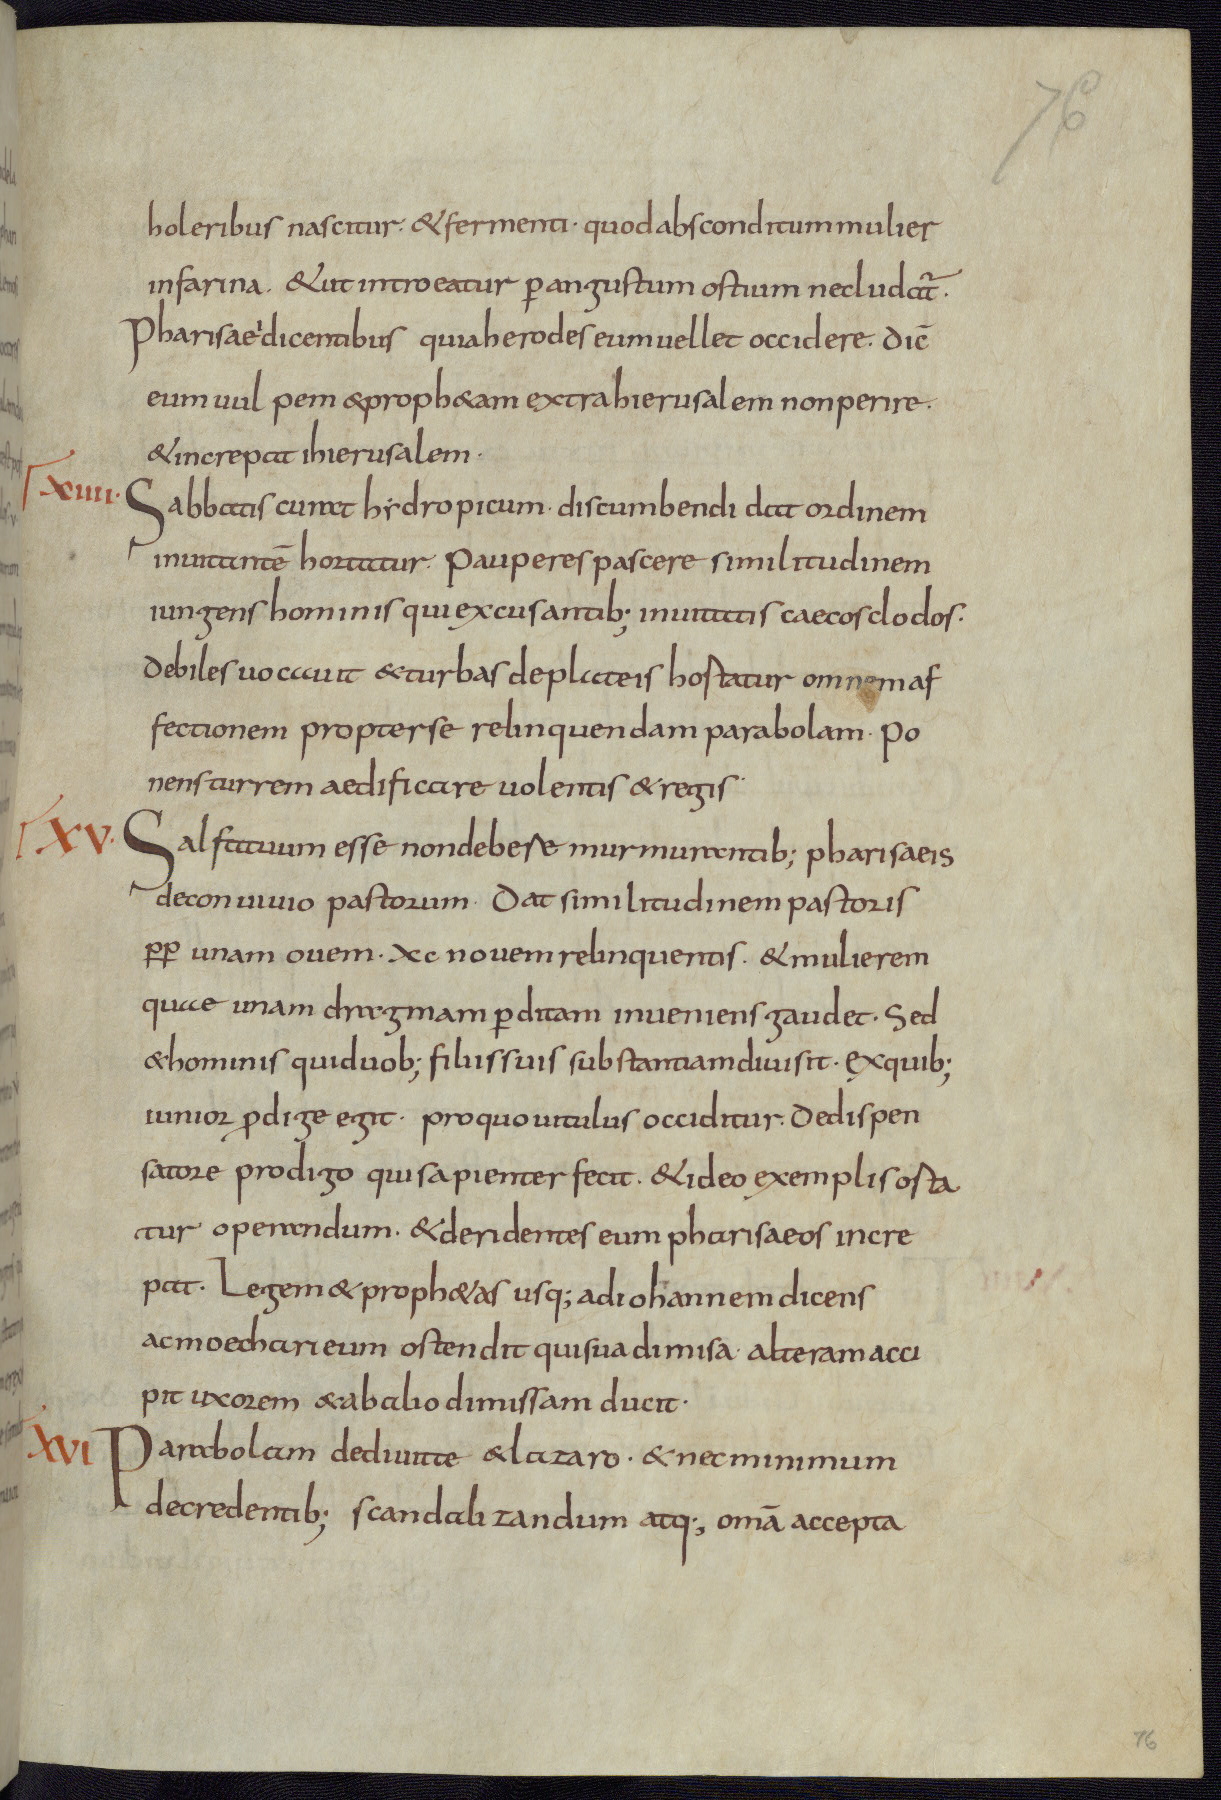 76
holeribus nascitur. & fermenti. quod absconditum mulier
in farina. & ut introeatur p̄ angustum ostium ne cludat̄.
Pharisaeis dicentibus quia herodes eum uellet occidere. dic̄
eum uulpem & proph&am extra hierusalem non perire.
& increpat ihierusalem.
XIIII. Sabbatis curat hydropicum. discumbendi dat ordinem
inuitantē hortatur. Pauperes pascere similitudinem
iungens hominis qui excusantib; inuitatis caecos clodos.
debiles uocauit & turbas deplateis hostatur omnem af
fectionem propter se relinquendam parabolam. Po
nens turrem aedificare uolentis & regis.
XV. Sal fatuum esse non debere murmurantib; pharisaeis
de conuiuio pastorum. Dat similitudinem pastoris
pp unam ouem. xc nouem relinquentis. & mulierem
quae unam dragmam p̄ditam inueniens gaudet. Sed
& hominis qui duob; filiis suis substantiam diuisit. Ex quib;
iunior p̄dige egit. pro quo uitulus occiditur. De dispen
satore prodigo qui sapienter fecit. & ideo exemplis osta
tur operandum. & deridentes eum pharisaeos incre
pat. Legem & proph&as usq; ad iohannem dicens
ac moechari eum ostendit qui sua dimisa. alteram acci
pit uxorem & ab alio dimissam ducit.
XVI Parabolam de diuite & lazaro. & nec minimum
de credentib; scandalizandum atq;, omā accepta
76